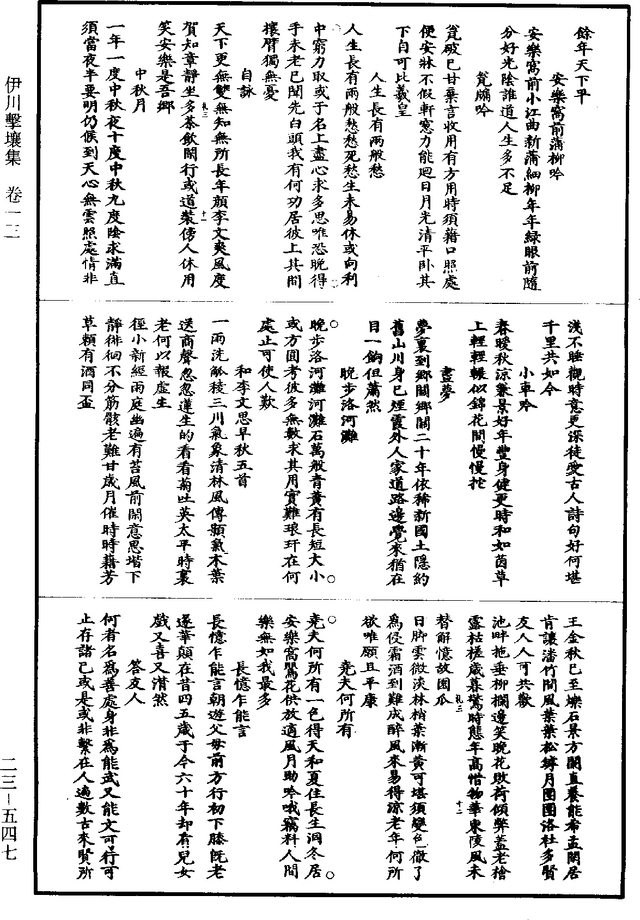 餘年天下平
安樂窩前蒲柳吟
安樂窩前小江曲新蒲細柳年年綠眼前隨
分好光陰誰道人生多不足
甕牖吟
甕破已甘棄言收用有方用時須藉口照處
便安牀不假軒窓力能迴日月光清平卧其
下自可比羲皇
人生長有兩般愁
人生長有兩般愁愁死愁生未易休或向利
中窮力取或于名上盡心求多思唯恐晚得
手未老已聞先白頭我有何功居彼上其間
攘臂獨無憂
自詠
天下更無雙無知無所長年顏李文爽風度
賀知章靜坐多茶飲閑行或道裝傍人休用
笑安樂是吾鄉
中秋月
一年一度中秋夜十度中秋九度陰求滿直
須當夜半要明仍候到天心無雲照處情非
淺不睡觀時意更深徒愛古人詩句好何堪
千里共如今
小車吟
春暖秋涼兼景好年豐身健更時和如茵草
上輕輕輾似錦花間慢慢拕
晝夢
夢裏到鄉關鄉關二十年依稀新國土隱約
舊山川身已煙霞外人家道路邊覺來猶在
目一餉但蕭然
晚步洛河灘
晚步洛河灘河灘石萬般青黃有長短大小
或方圓考彼多無數求其用實難琅玕在何
處止可使人歎
和李文思早秋五首
一雨洗觚稜三川氣象清林風傳顥氣木葉
送商聲忽忽蓮生的看看菊吐英太平時裏
老何以報虛生
徑小新經雨庭幽遍有苔風前閑意思堦下
靜徘徊不分筋骸老難甘歲月催時時藉芳
草頼有酒同盃
王金秋已至欒石景方開直養能希孟閑居
肯讓潘竹間風葉葉松罅月團團洛社多賢
友人人可共歡
池畔拖垂柳欄邊笑晚花敗荷傾弊蓋老檜
露枯槎歲暮驚時態年高惜物華東陵風未
替解憶故園瓜
日脚雲微淡林梢葉漸黃可堪須變色徹了
為侵霜酒到難成醉風來易得涼老年何所
欲唯願且平康
堯夫何所有
堯夫何所有一色得天和夏住長生洞冬居
安樂窩鶯花供放適風月助吟哦竊料人間
樂無如我最多
長憶乍能言
長憶乍能言朝遊父母前方行初下膝既老
遂華顛在昔四五歲于今六十年却看兒女
戲又喜又潸然
答友人
何者名為善處身非為能武又能文可行可
止存諸已或是或非繫在人遍數古來賢所
伊川擊壤集 卷一二
二三－五四七